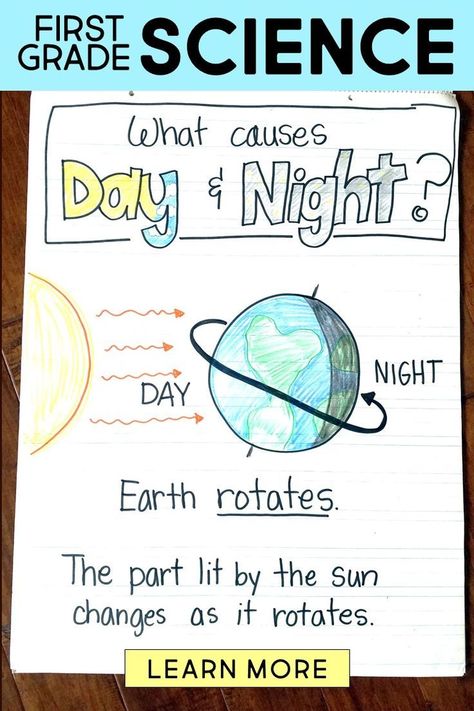 FIRST
GRADE SCIENCE
What causes
Day & Night?
©
DAY
NIGHT
Earth rotates.
The part lit by the sun
changes as it rotates.
LEARN MORE